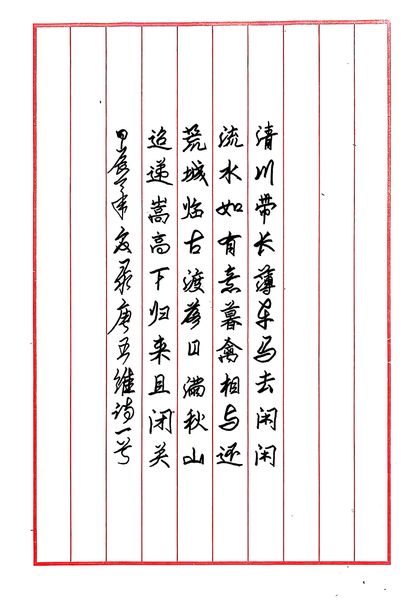 清川带长薄车马去闲闲
流水如有意暮禽相与还
荒城临古渡落日满秋山
迢递嵩高下归来且闭关
甲辰录唐王维诗一首